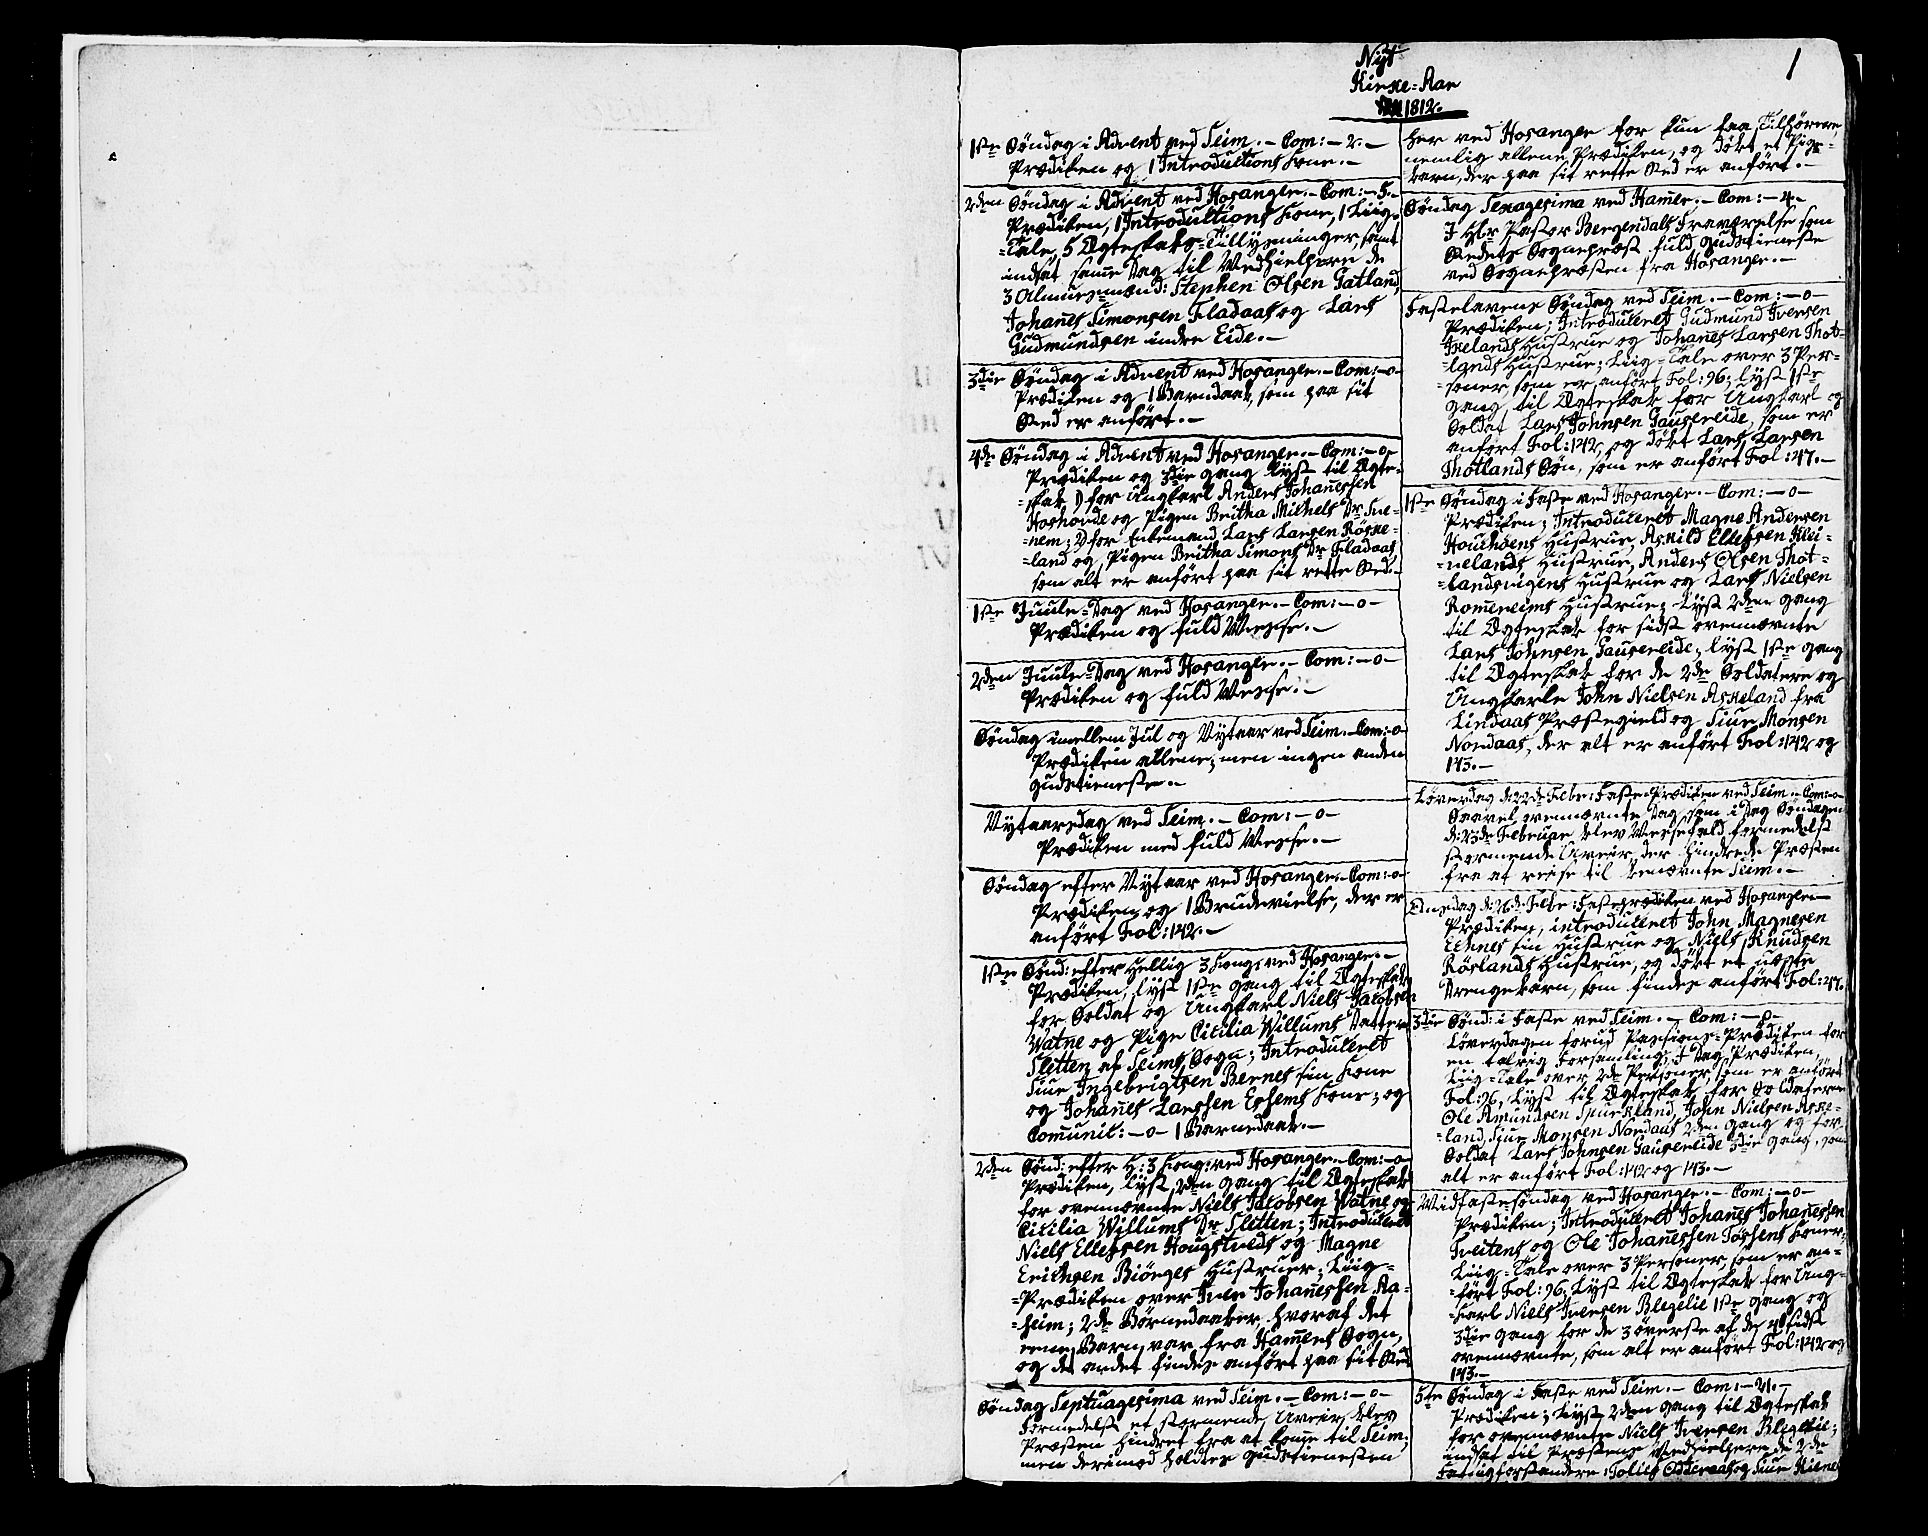 Nyt
Kirke-Aar
1812.
1
1ste Söndag i Advent ved Seim. - Com: - 2. -
Prædiken og 1 Introductions Kone. -
2den Söndag i Advent ved Hosanger. - Com: - 5. -
Prædiken, 1 Introductions Kone, 1 Liig-
-Tale, 5 Ægteskabs-Tillysninger, samt
indsat samme Dag til Medhielpere de
3 Almuesmænd: Stephen Olsen Gatland,
Johañes Simonsen Fladaas og Lars
Gudmundsen indre Eide. -
3die Söndag i Advent ved Hosanger. - Com: - o -
Prædiken og 1 Barnedaab, som paa sit
Sted er anfört. -
4de Söndag i Advent ved Hosanger. - Com: - o -
Prædiken og 3die gang lyst til Ægte-
-skab 1) for Ungkarl Anders Johañessen
Hoshovde og Pigen Britha Michels Dr
-nem; 2) for Enkemand Lars Larsen Röske-
-land og Pigen Britha Simons Dr Fladaas,
som alt er anfört paa sit rette Sted. -
1ste Juule-Dag ved Hosanger. - Com: - o -
Prædiken og fuld Messe. -
2den Juule-Dag ved Hosanger. - Com: - o -
Prædiken og fuld Messe. -
Söndag imellem Jul og Nytaar ved Seim. - Com: - o -
Prædiken allene, men ingen anden
Gudstieneste. -
Nytaarsdag ved Seim. - Com: - o -
Prædiken med fuld Messe. -
Söndag efter Nytaar ved Hosanger. - Com: - o
Prædiken og 1 Brudevielse, der er
anfört Fol: 142. -
1ste Sönd: efter Hellig 3 Kong: ved Hosanger. -
Prædiken, lyst 1ste gang til Ægteskab
for Soldat og Ungkarl Niels Jacobsen
Watne og Pige Cicilia Willums Datter
Sletten af Seims Sogn; Introduceret
Siur Ingebrigtsen Bernes sin Kone
og Johañes Larssen Eshems Kone; og
Comunic: - o - 1 Barnedaab. -
2den Sönd: efter H: 3 Kong: ved Hosanger. - Com: - o -
Prædiken, lyst 2den gang til Ægteskab
for ovenmeldte Niels Jacobsen Watne og
Cicilia Willums Dr Sletten; Introduceret
Niels Ellefsen Hougstveds og Magne
Erichsen Biörges Hustruer; Liig-
-Prædiken over Iver Johañessen Aa-
-heim; 2de Börnedaaber, hvoraf det
eene Barn var fra Hamers Sogn,
og det andet findes anfört paa sit Sted
Söndag Septuagesima ved Seim. - Com: - o -
Formedelst et stormende Uveir blev
Præsten hindret fra at komme til Seim,
men derimod holdtes Gudstienesten
her ved Hosanger for kun faa Tilhörere,
nemlig allene Prædiken, og döbt et Pige-
-barn, der paa sit rette Sted er anfört. -
Söndag Sexagesima ved Hamer. - Com: - 4. -
I Hr Pastor Bergendals Fraværelse som
Stedets Sognepræst fuld Gudstieneste
ved Sognepræsten fra Hosanger. -
Fastelavens Söndag ved Seim. - Com: - o -
Prædiken; Introduceret Gudmund Iversen
Hustrue og Johañes Larsen Thot-
-lands Hustrue; Liig-Tale over 3 Per-
-soner, som er anfört Fol: 96; lyst 1ste
gang til Ægteskab for Ungkarl og
Soldat Lars Johnsen Gausereide, som er
anfört Fol: 142, og döbt Lars Larsen
Thotlands Sön, som er anfört Fol: 47. -
1ste Söndag i Faste ved Hosanger. - Com: - o -
Prædiken; Introduceret Magne Andersen
Hustrue, Askild Ellefsen Klei-
-velands Hustrue, Anders Olsen Thot-
-landsvigens Hustrue og Lars Nielsen
Romereims Hustrue; lyst 2den gang
til Ægteskab for sidst ovenmeldte
Lars Johnsen Gausereide; lyst 1ste gang
til Ægteskab for de 2de Soldatere og
Ungkarle John Nielsen Askeland fra
Lindaas Præstegield og Siur Monsen
Nordaas, der alt er anfört Fol: 142 og
143. -
Löverdag d: 22de Febr: Faste-Prædiken ved Seim. - Com: - o -
Saavel ovenmeldte Dag, som i Dag Söndagen
d: 23de Februar blev Messefald formedelst
stormende Uveir, der hindrede Præsten
fra at reise til benævnte Seim. -
Onsdag d: 26de Febr: Fasteprædiken ved Hosanger. -
Prædiken, introduceret John Magnesen
sin Hustrue og Niels Knudsen
Röslands Hustrue, og döbt et
Drengebarn, som findes anfört Fol: 47.
3die Sönd: i Faste ved Seim. - Com: - o -
Löverdagen forud Passions-Prædiken for
en talrig Forsamling. I Dag Prædiken,
Liig-Tale over 2de Personer, som er anfört
Fol: 96, lyst til Ægteskab for Soldaterne
Ole Amundsen Spurkland, John Nielsen Aske-
-land, Siur Monsen Nordaas 2den gang og for
Soldat Lars Johnsen Gausereide 3die gang, som
alt er anfört Fol: 142 og 143. -
Midfastesöndag ved Hosanger. - Com: - o -
Prædiken; Introduceret Johañes Johañessen
Tveitens og Ole Johañessen Koner;
Liig-Tale over 3 Personer, som er an-
-fört Fol: 96, lyst til Ægteskab for Ung-
-karl Niels Iversen Blegelie 1ste gang og
3die gang for de 3 överste af de 4 sidst
ovenmeldte, som alt er anfört Fol: 142 og
143. -
5te Söndag i Faste ved Seim. - Com: - 21. -
Prædiken; lyst 2den gang til Ægteskab
for ovenmeldte Niels Iversen Blegelie;
indsat til Præstens Medhielpere de 2de
Fattigforstandere: Tollef Odderaas og Siur